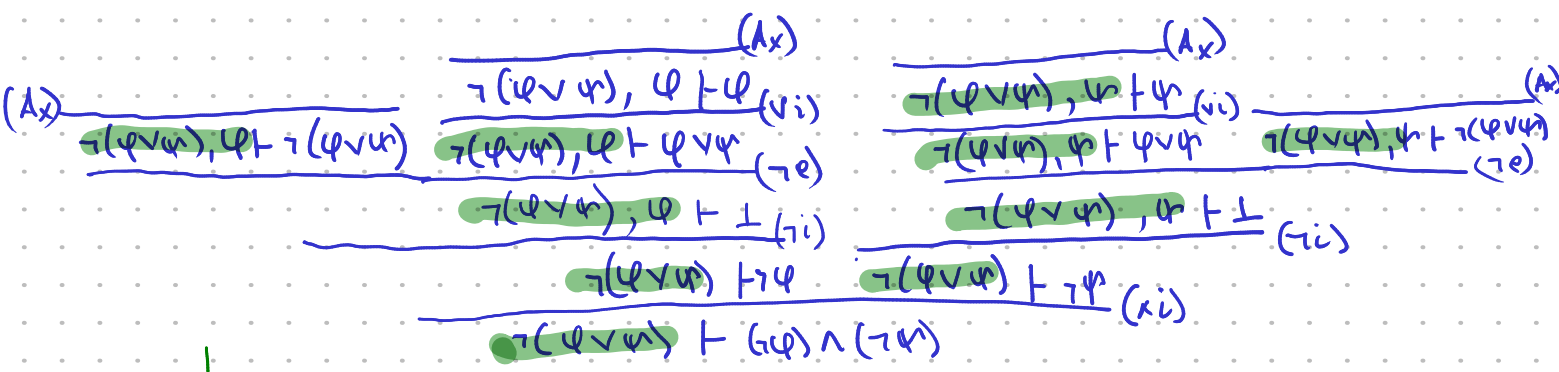 (Ax) (Ax)
¬(φ∨ψ), φ ⊢ φ (∨i) ¬(φ∨ψ), ψ ⊢ ψ (∨i)
(Ax) (Ax)
¬(φ∨ψ), φ ⊢ ¬(φ∨ψ) ¬(φ∨ψ), φ ⊢ φ∨ψ (¬e) ¬(φ∨ψ), ψ ⊢ φ∨ψ ¬(φ∨ψ), ψ ⊢ ¬(φ∨ψ) (¬e)
¬(φ∨ψ), φ ⊢ ⊥ (¬i) ¬(φ∨ψ), ψ ⊢ ⊥ (¬i)
¬(φ∨ψ) ⊢ ¬φ ¬(φ∨ψ) ⊢ ¬ψ (∧i)
¬(φ∨ψ) ⊢ (¬φ) ∧ (¬ψ)